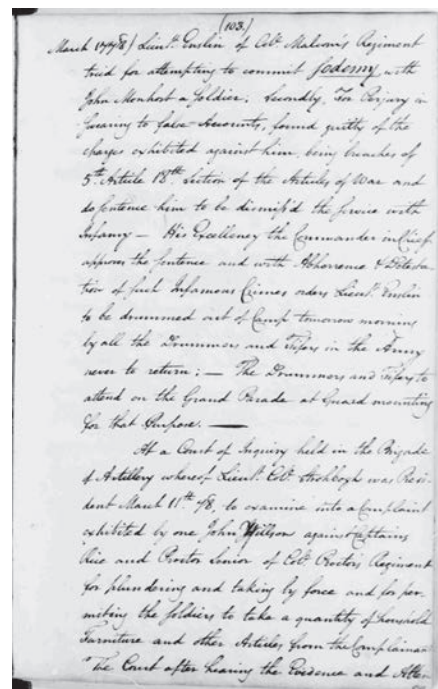 (103.)
March 1778) Lieut. Enslin of Col. Malcom's Regiment
tried for attempting to commit sodomy, with
John Monhort a Soldier; Secondly, For Perjury in
swearing to false Accounts, found guilty of the
charges exhibited against him, being breaches of
5th Article 18th Section of the Articles of War and
do sentence him to be dismiss'd the Service with
Infamy — His Excellency the Commander in Chief
approves the sentence and with Abhorrence & Detesta-
tion of such Infamous Crimes orders Lieut. Enslin
to be drummed out of Camp tomorrow morning
by all the Drummers and Fifers in the Army
never to return; — The Drummers and Fifers to
attend on the Grand Parade at Guard mounting
for that Purpose. —
At a Court of Inquiry held in the Brigade
of Artillery whereof Lieut. Col. was Presi-
dent March 11th 78, to examine into a Complaint
exhibited by one John Willson against Captains
Rice and Proctor Senior of Col. Proctor's Regiment
for plundering and taking by force and for per-
mitting the soldiers to take a quantity of household
Furniture and other Articles from the Complainant
The Court after hearing the Evidence and